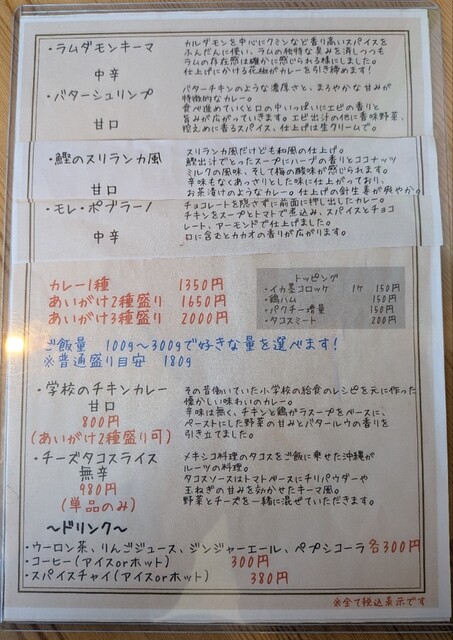 ・ラムダモンキーマ
中辛
カルダモンを中心にクミンなど香り高いスパイスを
ふんだんに使い、ラムの独特な臭みを消しつつも
ラムの存在感は確かに感じられる様にしました。
仕上げにかける花椒がカレーを引き締めます!
・バターシュリンプ
甘口
バターチキンのような濃厚さと、まろやかな甘みが
特徴的なカレー。
食べ進めていくと口の中いっぱいにエビの香りと
旨みが広がっていきます。エビ出汁の他に香味野菜、
控えめに香るスパイス、仕上げは生クリームで。
・鰹のスリランカ風
甘口
スリランカ風だけども和風の仕上げ。
鰹出汁でとったスープにハーブの香りとココナッツ
ミルクの風味、そして梅の酸味が感じられます。
辛味もなくあっさりとした味に仕上がっており、
お茶漬けのようなカレー。仕上げの針生姜が爽やか。
・モレ・ポブラーノ
中辛
チョコレートを隠さずに前面に押し出したカレー。
チキンをスープとトマトで煮込み、スパイスとチョコ
レート、アーモンドで仕上げました。
口に含むとカカオの香りが広がります。
カレー1種 1350円
あいがけ2種盛り 1650円
あいがけ3種盛り 2000円
トッピング
・イカ墨コロッケ 1ケ 150円
・鶏ハム 150円
・パクチー増量 150円
・タコスミート 200円
ご飯量 100g〜300gで好きな量を選べます!
※普通盛り目安 180g
・学校のチキンカレー
甘口
800円
(あいがけ2種盛り可)
その昔働いていた小学校の給食のレシピを元に作った
懐かしい味わいのカレー。
辛味は無く、チキンと鶏がらスープをベースに、
ペーストにした野菜の甘みとバタールウの香りを
引き立てました。
・チーズタコスライス
無辛
980円
(単品のみ)
メキシコ料理のタコスをご飯に乗せた沖縄が
ルーツの料理。
タコスソースはトマトベースにチリパウダーや
玉ねぎの甘みを効かせたキーマ風。
野菜とチーズと一緒に混ぜていただきます。
〜ドリンク〜
・ウーロン茶、りんごジュース、ジンジャーエール、ペプシコーラ 各300円
・コーヒー(アイスorホット) 300円
・スパイスチャイ(アイスorホット) 380円
※全て税込表示です